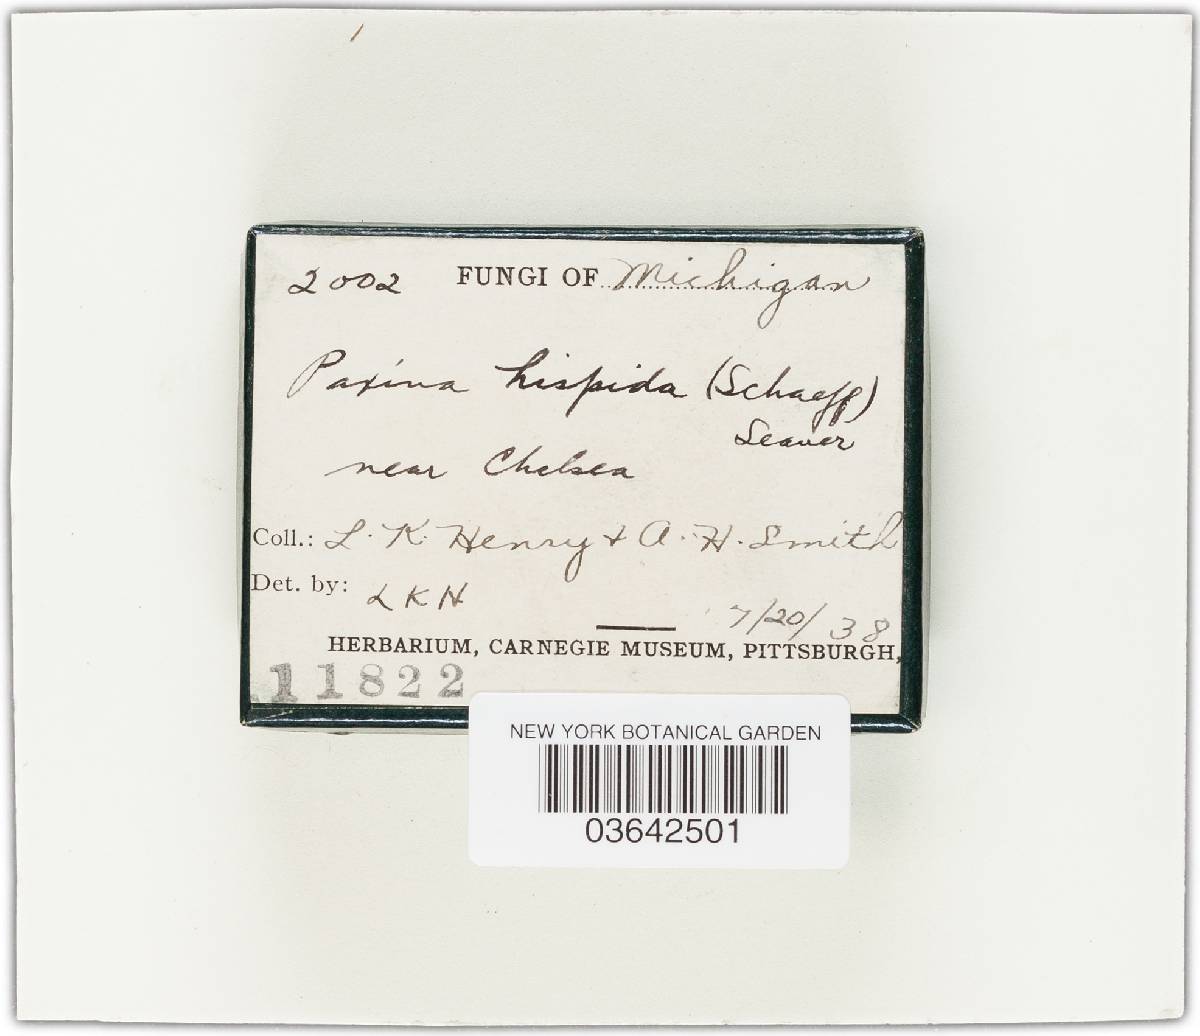 2002 FUNGI OF Michigan
Paxina hispida (Schaeff)
Seaver
near Chelsea
Coll.: L. K. Henry & A. H. Smith
Det. by: LKH
7/20/38
HERBARIUM, CARNEGIE MUSEUM, PITTSBURGH,
11822
NEW YORK BOTANICAL GARDEN
03642501